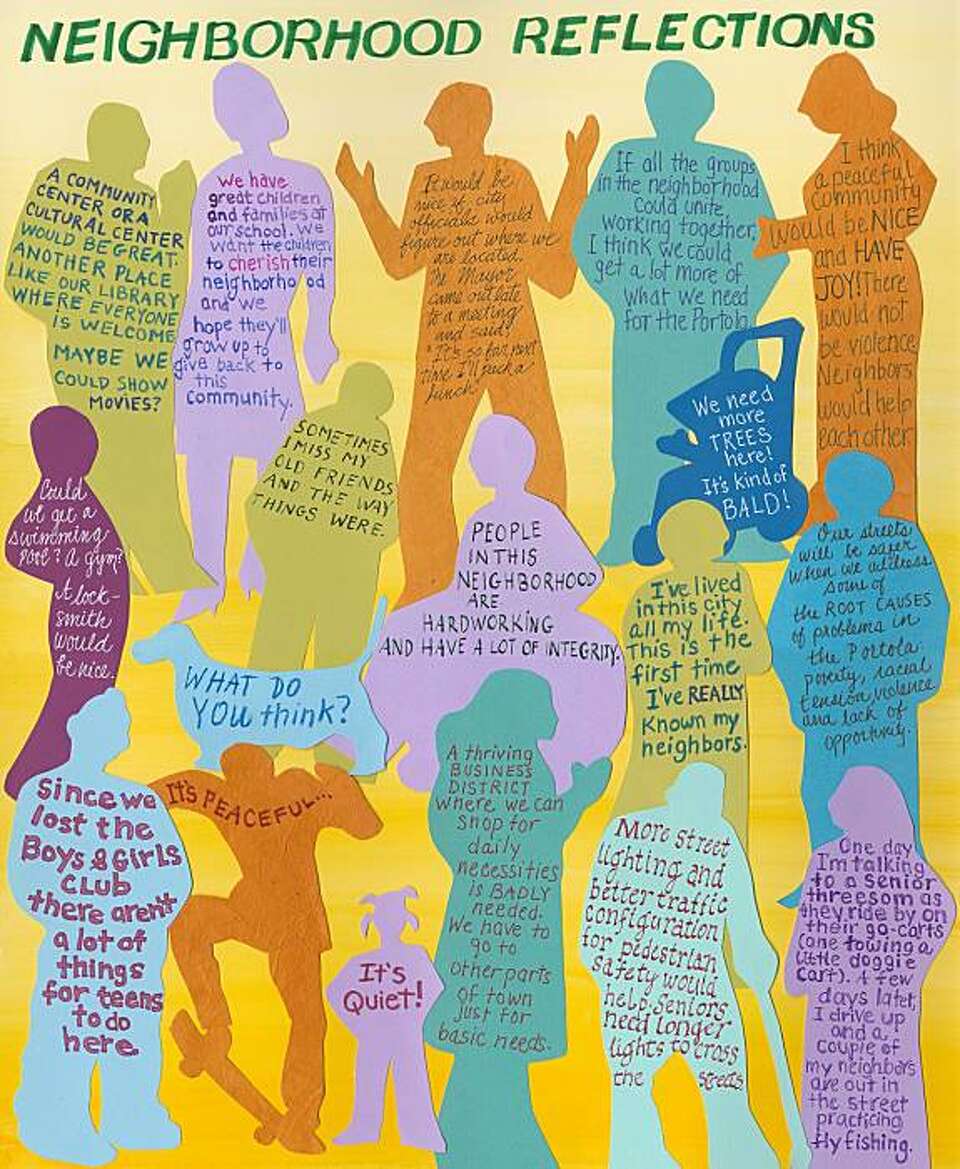 NEIGHBORHOOD REFLECTIONS
A COMMUNITY
CENTER OR A
CULTURAL CENTER
WOULD BE GREAT.
ANOTHER PLACE
LIKE OUR LIBRARY
WHERE EVERYONE
IS WELCOME
MAYBE WE
COULD SHOW
MOVIES?
We have
great children
and families at
our school. We
want the children
to cherish their
neighborhood
and we
hope they'll
grow up to
give back to
this
community.
It would be
nice if city
officials would
figure out where we
are located.
The Mayor
came out late
to a meeting
and said,
"It's so far next
time I'll pack a
lunch"
If all the groups
in the neighborhood
could unite,
working together,
I think we could
get a lot more of
what we need
for the Portola
I think
a peaceful
community
would be NICE
and HAVE
JOY! There
would not
be violence
Neighbors
would help
each other
We need
more
TREES
here!
It's kind of
BALD!
SOMETIMES
I MISS MY
OLD FRIENDS
AND THE WAY
THINGS WERE.
Could
we get a
swimming
pool? A gym?
A lock-
smith
would
be nice.
PEOPLE
IN THIS
NEIGHBORHOOD
ARE
HARDWORKING
AND HAVE A LOT OF INTEGRITY.
I've lived
in this city
all my life.
This is the
first time
I've REALLY
known my
neighbors.
Our streets
will be safer
when we address
some of
the ROOT CAUSES
of problems in
the Portola
poverty, racial
tension, violence
and lack of
opportunity.
WHAT DO
YOU think?
Since we
lost the
Boys & Girls
Club
there aren't
a lot of
things
for teens
to do
here.
It's PEACEFUL...
It's
Quiet!
A thriving
BUSINESS
DISTRICT
where we can
shop for
daily
necessities
is BADLY
needed.
We have to
go to
other parts
of town
just for
basic needs.
More street
lighting and
better traffic
configuration
for pedestrian
safety would
help. Seniors
need longer
lights to cross
the streets
One day
I'm talking
to a senior
threesom as
they ride by on
their go-carts
(one towing a
little doggie
cart). A few
days later,
I drive up
and a
couple of
my neighbors
are out in
the street
practicing
fly fishing.